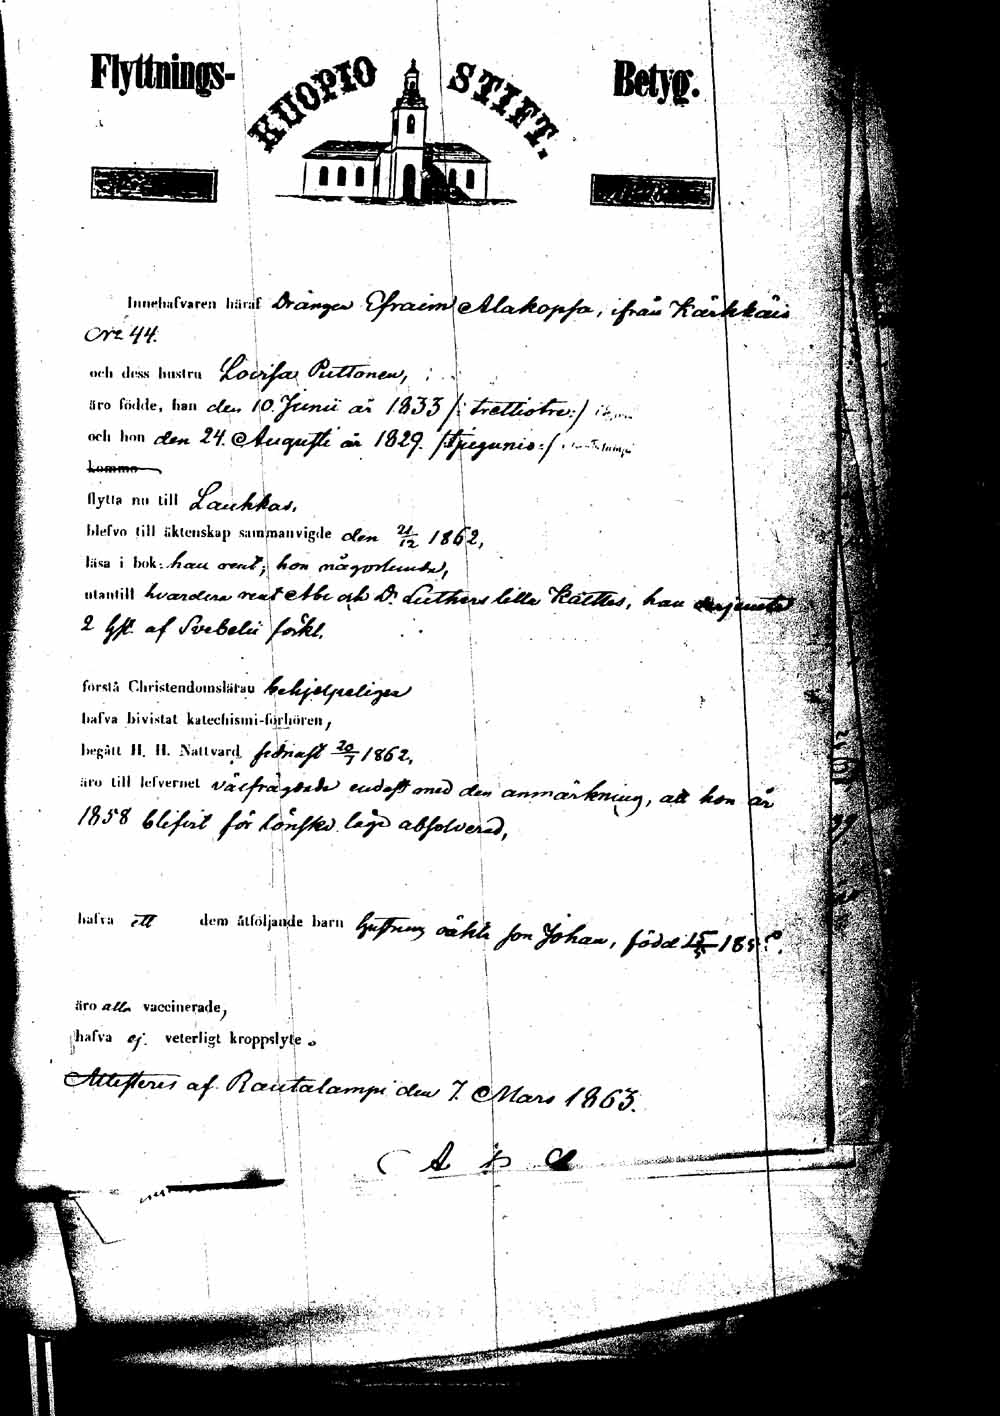 Flyttnings- KUOPIO STIFT. Betyg.
Innehafvaren häraf Drängen Efraim Alakopsa, ifrån Kärkkäis
No 44.
och dess hustru Lovisa Puttonen,
äro födde, han den 10. Junii år 1833 /: trettiotre :/
och hon den 24. Augusti år 1829. /: tjugunio :/
komma
flytta nu till Laukkas,
blefvo till äktenskap sammanvigde den 21/12 1862,
läsa i bok: han rent; hon någorlunda,
utantill hvardera rent Abc och D. Luthers lilla Kattkes, han derjemte
2 hst. af Svebelii förkl.
förstå Christendomslärau behjelpeligen
hafva bivistat katechismi-förhören,
begått H. H. Nattvard sednast 20/7 1862,
äro till lefvernet välfrägdade endast med den anmärkning, att hon år
1858 blifvit för lönska läge absolverad,
hafva ett dem åtföljande barn hustruns oäkta son Johan, född 15/ 185
äro alla vaccinerade,
hafva ej veterligt kroppslyte.
Attesteras af Rautalampi den 7. Mars 1863.